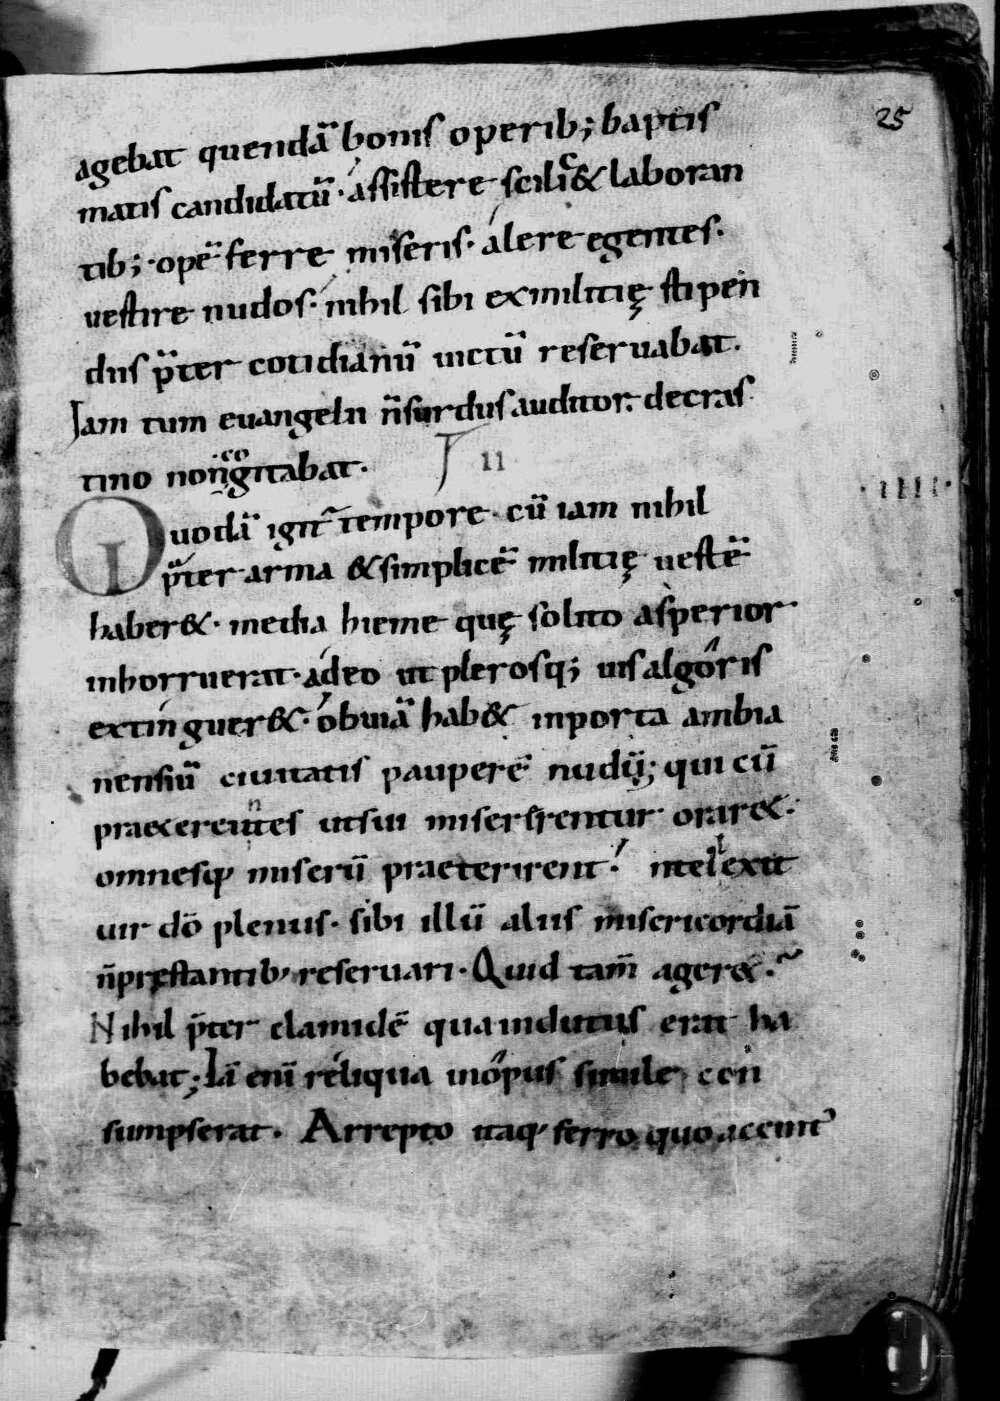 25
agebat quendā bonis operib; baptis
matis candidatū. assistere scilic& laboran
tib;. opē ferre miseris. alere egentes.
uestire nudos. nihil sibi ex militię stipen
diis p̄ter cotidianū uictū reseruabat.
Iam tum euangelii n̄ surdus auditor. de cras
tino non cogitabat.
II
Quodā igit̄ tempore. cū iam nihil
·IIII·
p̄ter arma & simplicē militię uestē
haber&. media hieme quę solito asperior
inhorruerat. adeo ut plerosq; uis algoris
extinguer&. obuiā hab& in porta ambia
nensiū ciuitatis pauperē nudū; qui cū
praetereuntes ut sui misererentur orar&.
omnesq; miserū praeterirent. intellexit
uir dō plenus. sibi illū aliis misericordiā
n̄ prestantib; reseruari. Quid tam̄ ager&.
Nihil p̄ter clamidē qua indutus erat ha
bebat; Iā enī reliqua in opus simile con
sumpserat. Arrepto itaq; ferro quo accinct̄